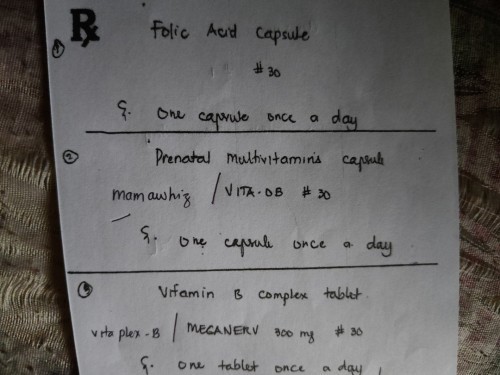 ① Rx Folic Acid Capsule
#30
S. One capsule once a day
② Prenatal Multivitamins capsule
mamawhiz / VITA-OB #30
S. One capsule once a day
③ Vitamin B complex tablet
vita plex-B / MEGANERV 300 mg #30
S. one tablet once a day